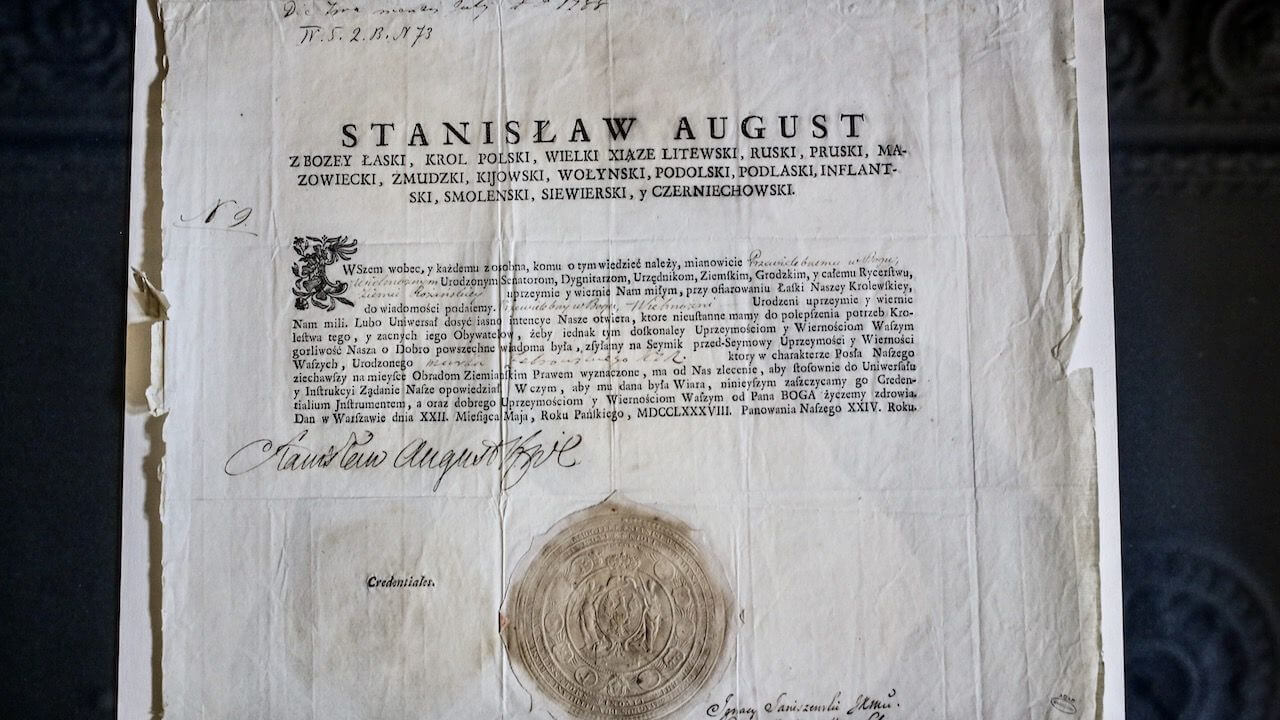 IV. 5. 2. B. N 73
STANISŁAW AUGUST
Z BOZEY ŁASKI, KROL POLSKI, WIELKI XIĄZE LITEWSKI, RUSKI, PRUSKI, MA-
ZOWIECKI, ZMUDZKI, KIJOWSKI, WOŁYNSKI, PODOLSKI, PODLASKI, INFLANT-
SKI, SMOLENSKI, SIEWIERSKI, y CZERNIECHOWSKI.
N 9.
WSzem wobec, y każdemu z osobna, komu o tym wiedzieć należy, mianowicie Przewielebnemu w Bogu,
Wielmożnym Urodzonym Senatorom, Dygnitarzom, Urzędnikom, Ziemskim, Grodzkim, y całemu Rycerstwu,
uprzeymie y wiernie Nam miłym, przy ofiarowaniu Łaski Naszey Krolewskiey,
do wiadomości podaiemy. Przewielebny w Bogu Wielmożni Urodzeni uprzeymie y wiernie
Nam mili. Lubo Uniwersał dosyć iasno intencye Nasze otwiera, ktore nieustanne mamy do polepszenia potrzeb Kro-
lestwa tego, y zacnych iego Obywatelow, żeby iednak tym doskonaley Uprzeymościom y Wiernościom Waszym
gorliwość Nasza o Dobro powszechne wiadoma była, zsyłamy na Seymik przed-Seymowy Uprzeymości y Wierności
Waszych, Urodzonego ktory w charakterze Posła Naszego
ziechawszy na mieysce Obradom Ziemiańskim Prawem wyznaczone, ma od Nas zlecenie, aby stosownie do Uniwersału
y Instrukcyi Ządanie Nasze opowiedział. W czym, aby mu dana była Wiara, ninieyszym zaszczycamy go Creden-
tialium Jnstrumentem, a oraz dobrego Uprzeymościom y Wiernościom Waszym od Pana BOGA życzemy zdrowia.
Dan w Warszawie dnia XXII. Miesiąca Maja, Roku Pańskiego, MDCCLXXXVIII. Panowania Naszego XXIV. Roku.
Stanisław August Krol
Credentiales.
Ignacy